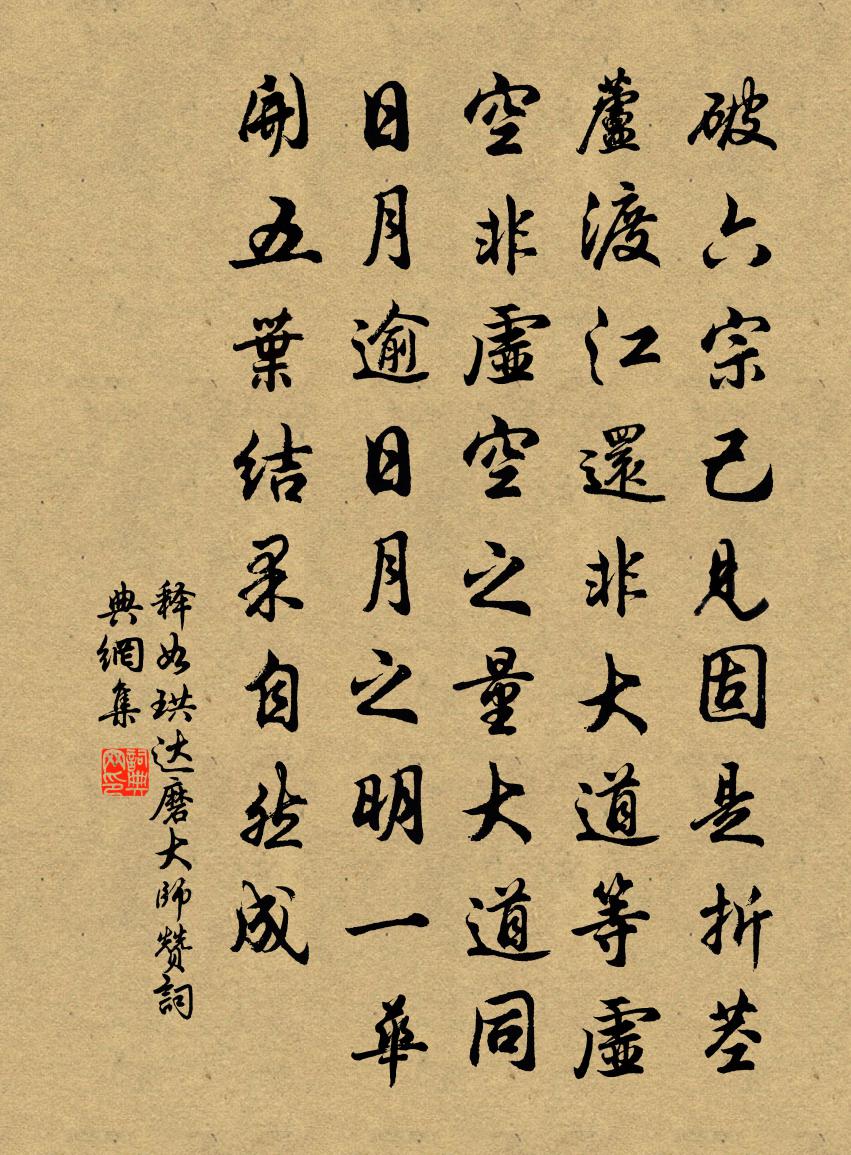 破六宗已見固是折莖
蘆渡江還非大道等虛
空非虛空之量大道同
日月逾日月之明一華
開五葉結果自然成
释如珙达磨大師赞詞
典網集
詞典网印